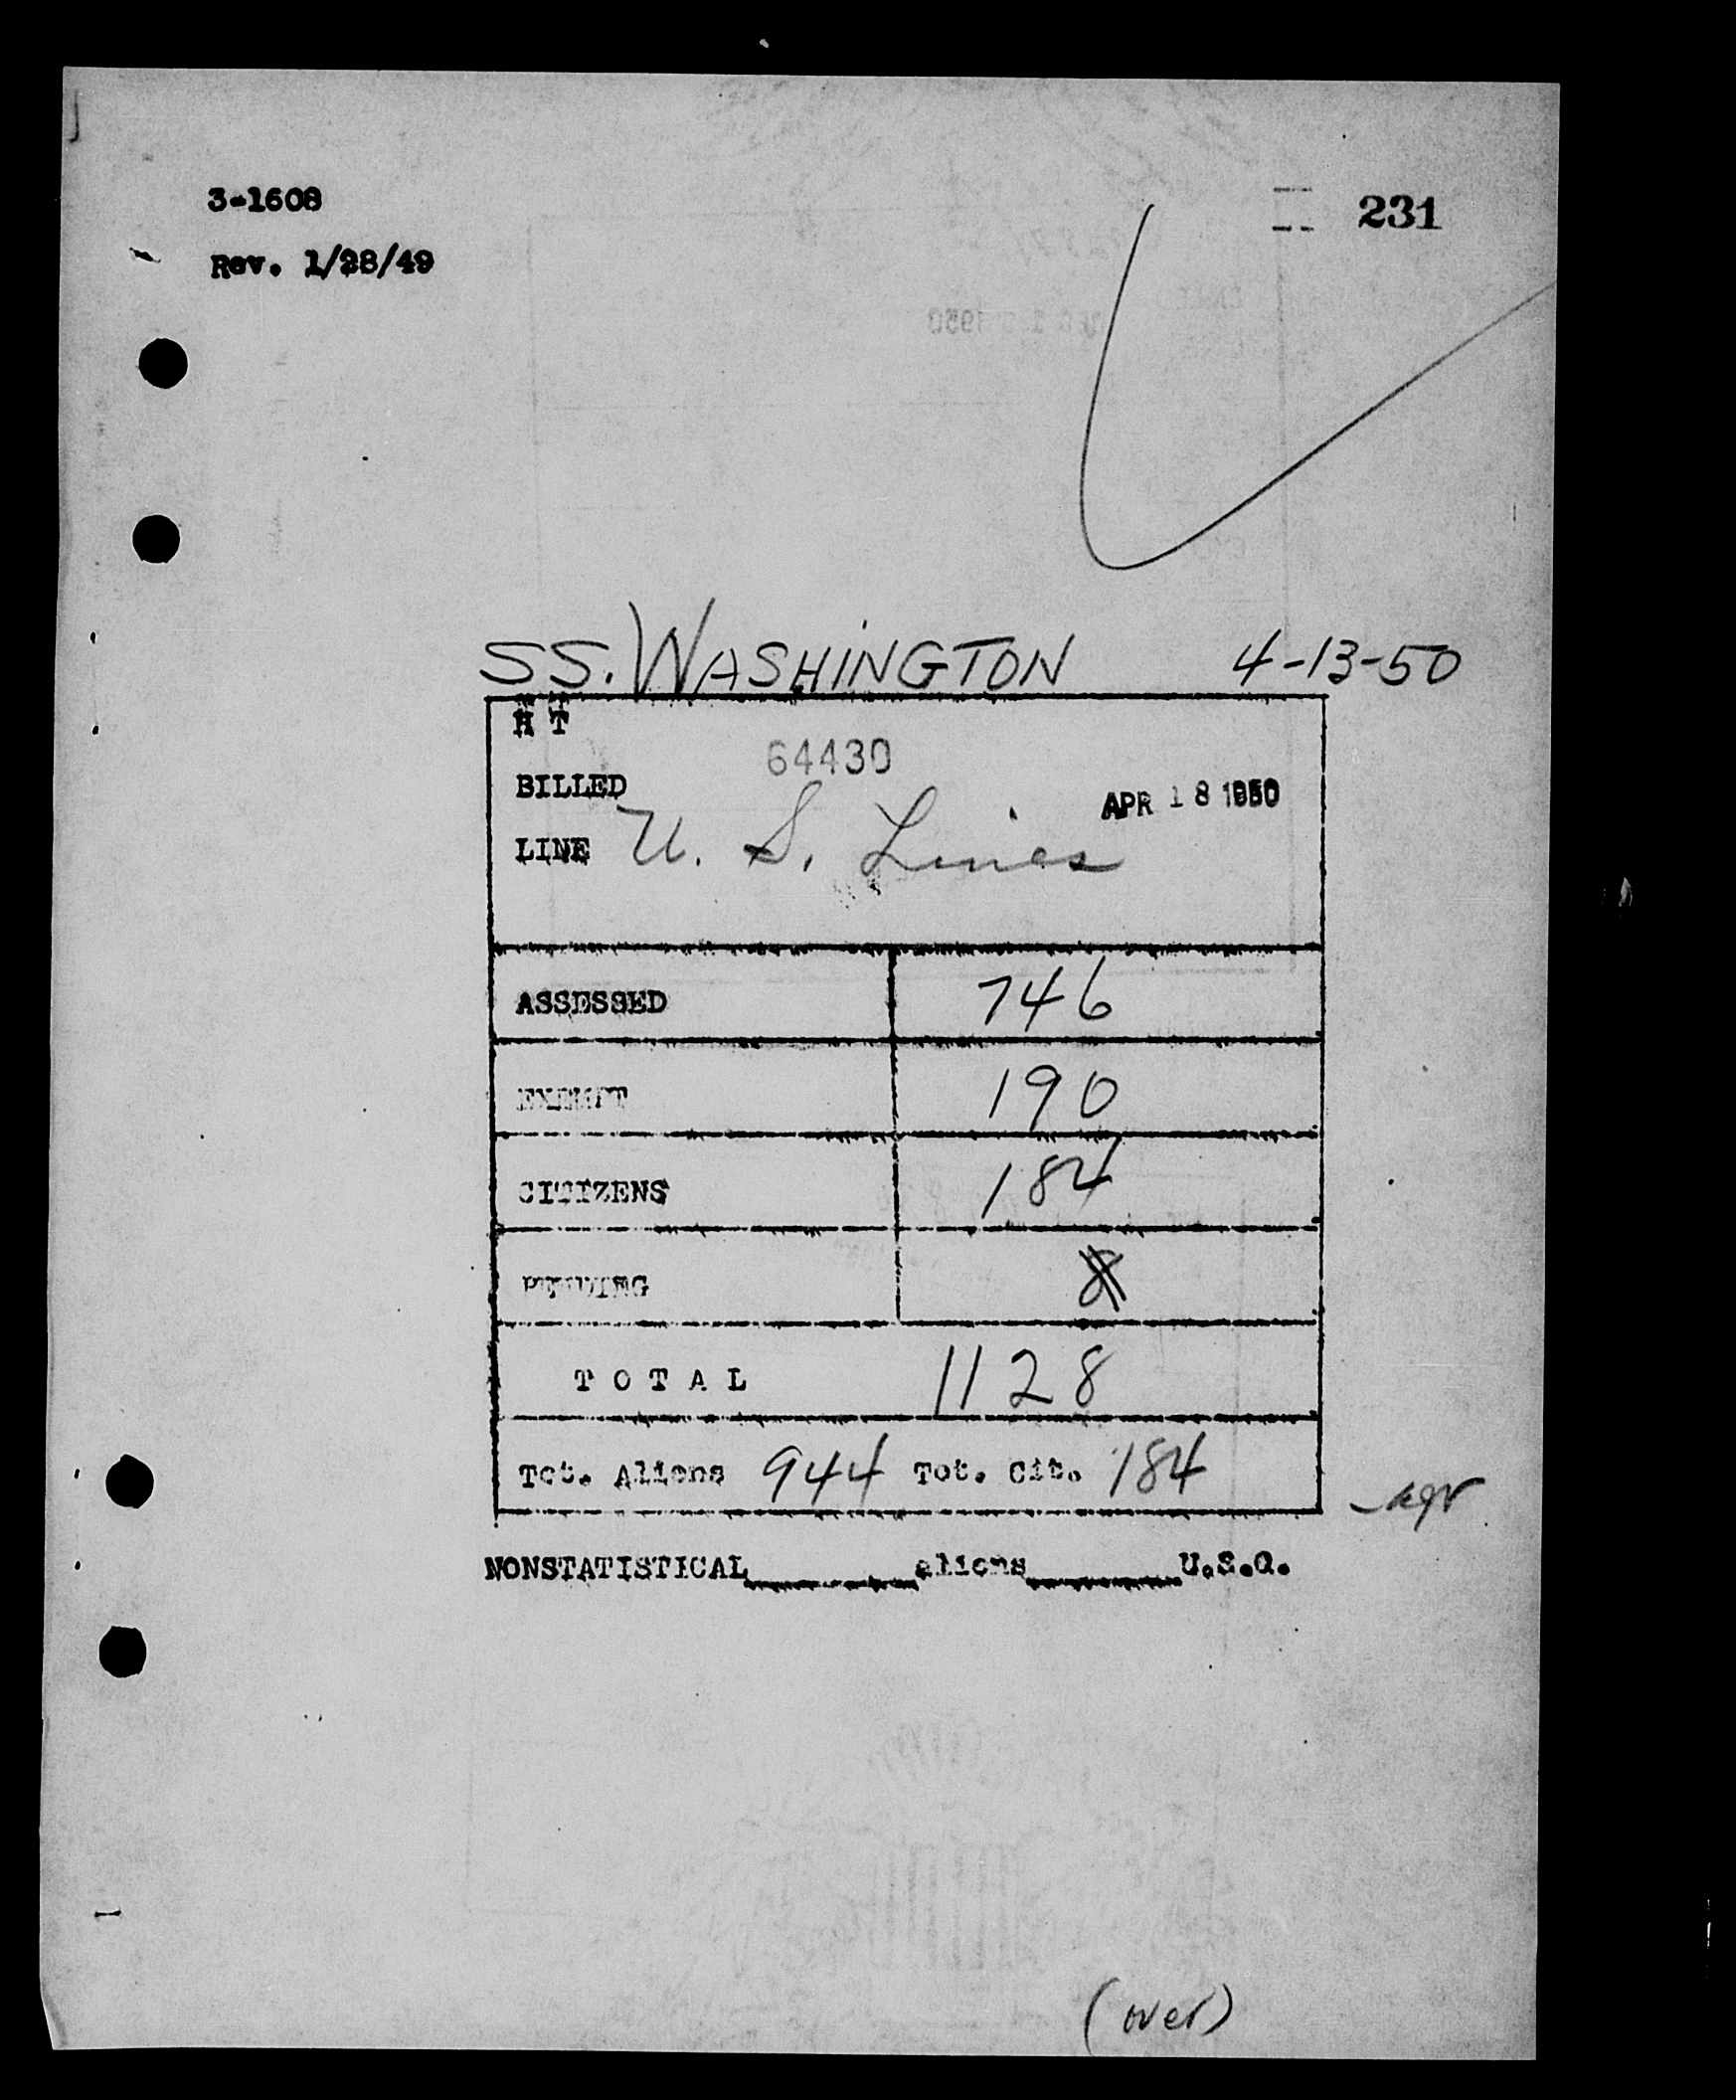 3-1608
231
Rev. 1/28/49
SS. WASHINGTON 4-13-50
H T
64430
BILLED
APR 18 1950
LINE U. S. Lines
ASSESSED 746
EXEMPT 190
CITIZENS 184
PENDING 8
T O T A L 1128
Tot. Aliens 944 Tot. Cit. 184
NONSTATISTICAL aliens U.S.C.
(over)